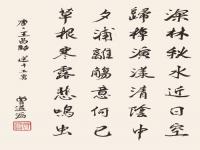 深林秋水近日空
歸棹演漾清陰中
夕浦離觴意何已
草根寒露悲鳴虫
唐·王昌齡 送十五舅